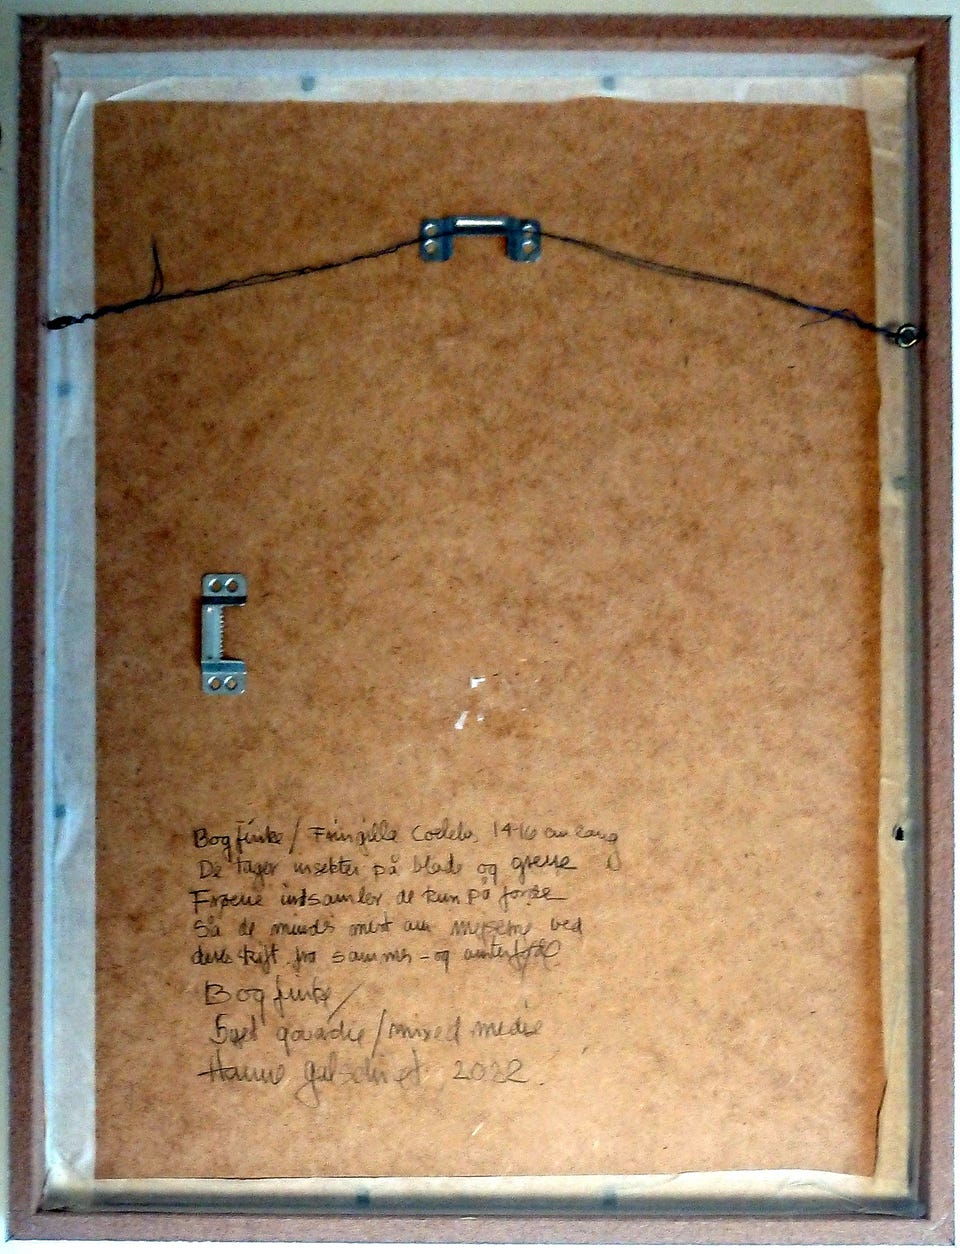 Bogfinke / Fringilla Coelebs 14-16 cm lang
De tager insekter på blade og grene
Frøene indsamler de kun på jorde
Så de mindes mest om mejserne ved
deres skift fra sommer - og
Bogfinke /
Syet gouache / mixed media
Hanne 2022